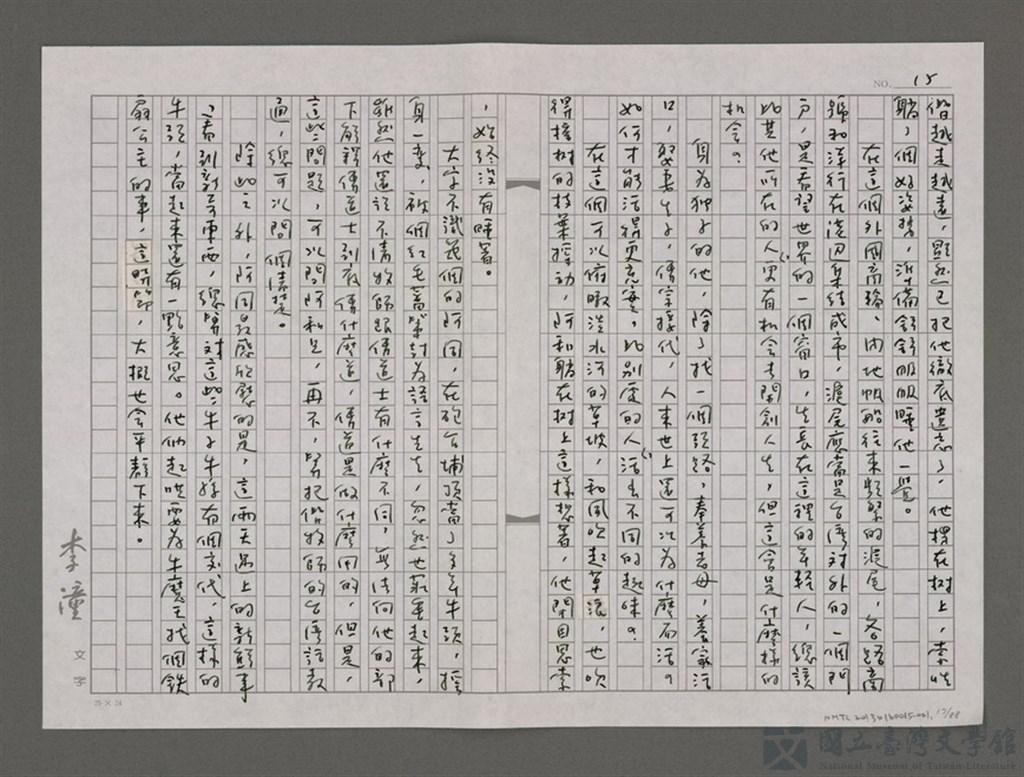 NO. 15
偕越走越遠，顯然已把他徹底遺忘了，他攬在樹上，索性
躺，個好姿勢，準備舒舒服服睡他一覺。
在這個外國商務、內地帆船往來頻繁的滬尾，各路商
號和洋行在港邊集結成市，滬尾應當是台灣對外的一個門
戶，是看望世界的一個窗口，生長在這裡的年輕人，總該
比其他所在的人更有機會去開創人生，但這會是什麼樣的
機會？
身為獨子的他，除了找一個頭路，奉養老母，養家活
口，娶妻生子，傳宗接代，人來世上還可以為什麼而活？
如何才能活得更充實，比別處的人活出不同的趣味？
在這個可以俯瞰淡水河的草坡，和風吹起草浪，也吹
得榕樹的枝葉搖動，阿和躺在樹上這樣想著，他閉目思索
，始終沒有睡著。
大字不識幾個的阿同，在砲台埔頂當了多年牛頭，搖
身一變，被個紅毛番
雖然他還說不清牧師跟傳道士有什麼不同，無法向他的部
下解釋傳道士到底傳什麼道，傳道是做什麼用的，但是，
這些問題，可以問阿和兄，再不，
通，總可以問個清楚。
除此之外，阿同最感欣慰的是，這兩天遇上的新鮮事
、看到新奇東西，總算對這些牛子牛孫有個交代，這樣的
牛頭，當起來還有一點意思。他們起哄要為牛魔王找個鐵
扇公主的事，這時節，大概也會平靜下來。
李潼
文字
25×24
NMTL20130120015-001, 17/88
國立臺灣文學館
National Museum of Taiwan Literature